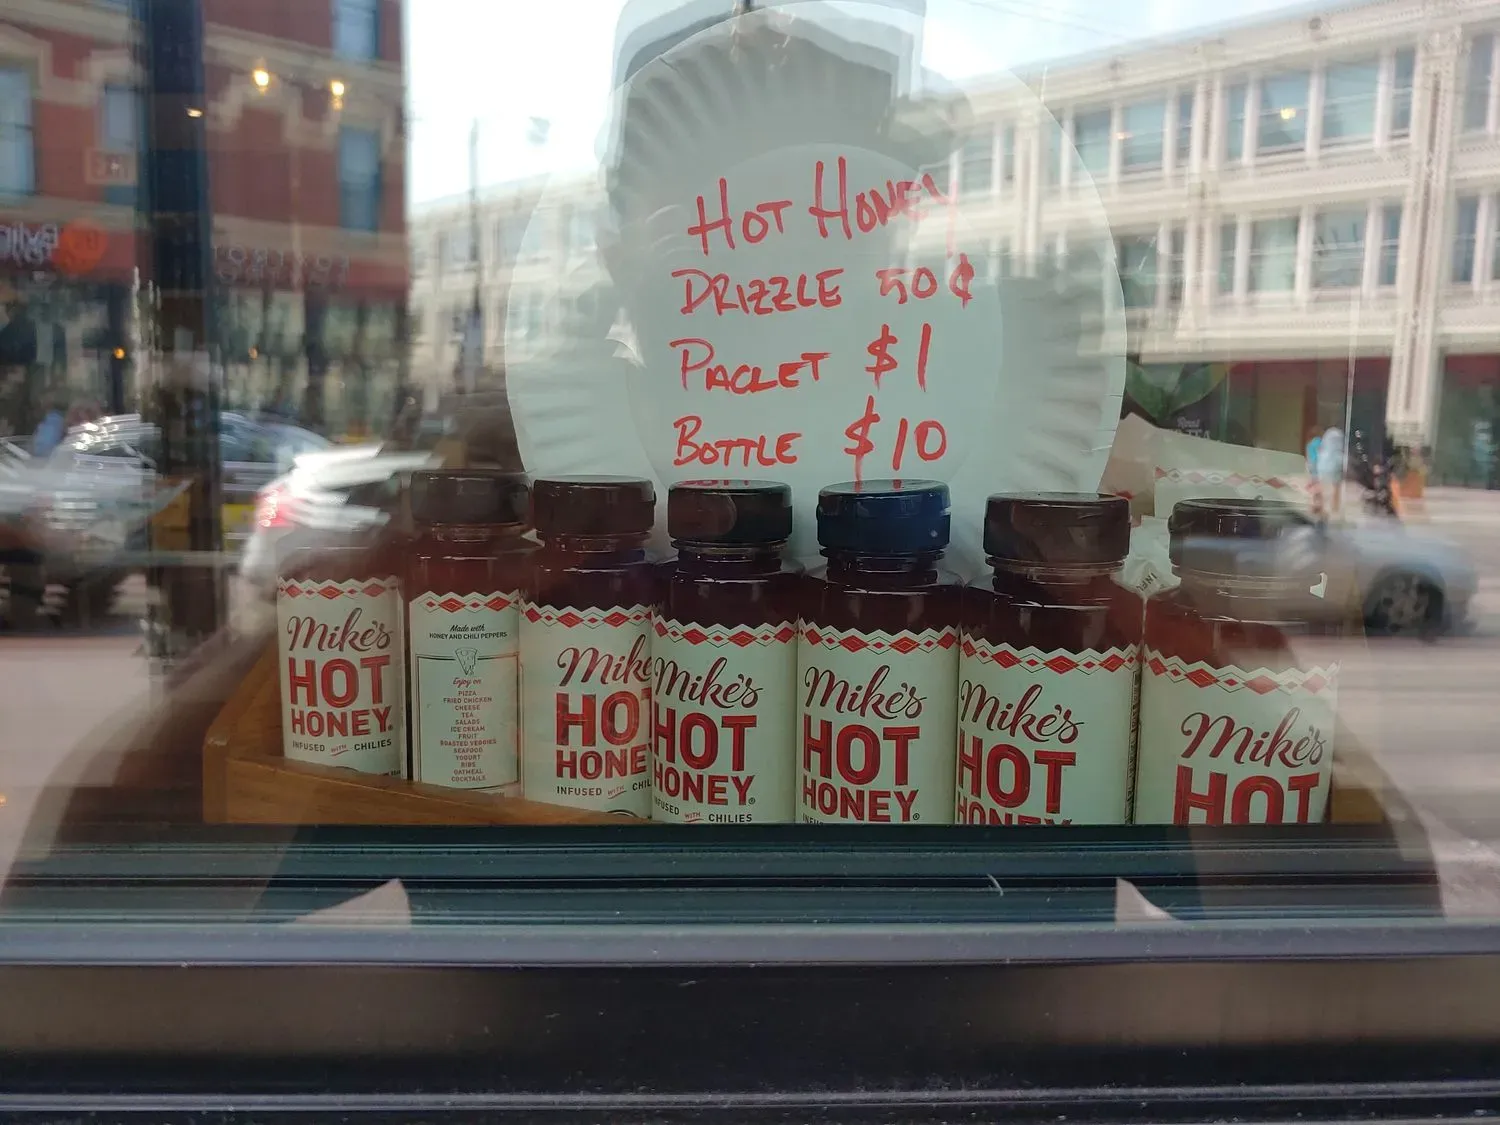 HOT HONEY
DRIZZLE 50¢
PACKET $1
BOTTLE $10
Mike's
HOT
HONEY®
INFUSED WITH CHILIES
Made with
HONEY AND CHILI PEPPERS
Enjoy on
PIZZA
FRIED CHICKEN
CHEESE
TEA
SALADS
ICE CREAM
FRUIT
ROASTED VEGGIES
SEAFOOD
YOGURT
RIBS
OATMEAL
COCKTAILS
Mike
HO
HONE
INFUSED WITH CHIL
Mike's
HOT
HONEY®
FUSED WITH CHILIES
Mike's
HOT
HONEY®
Mike's
HOT
HONEY
Mike's
HOT